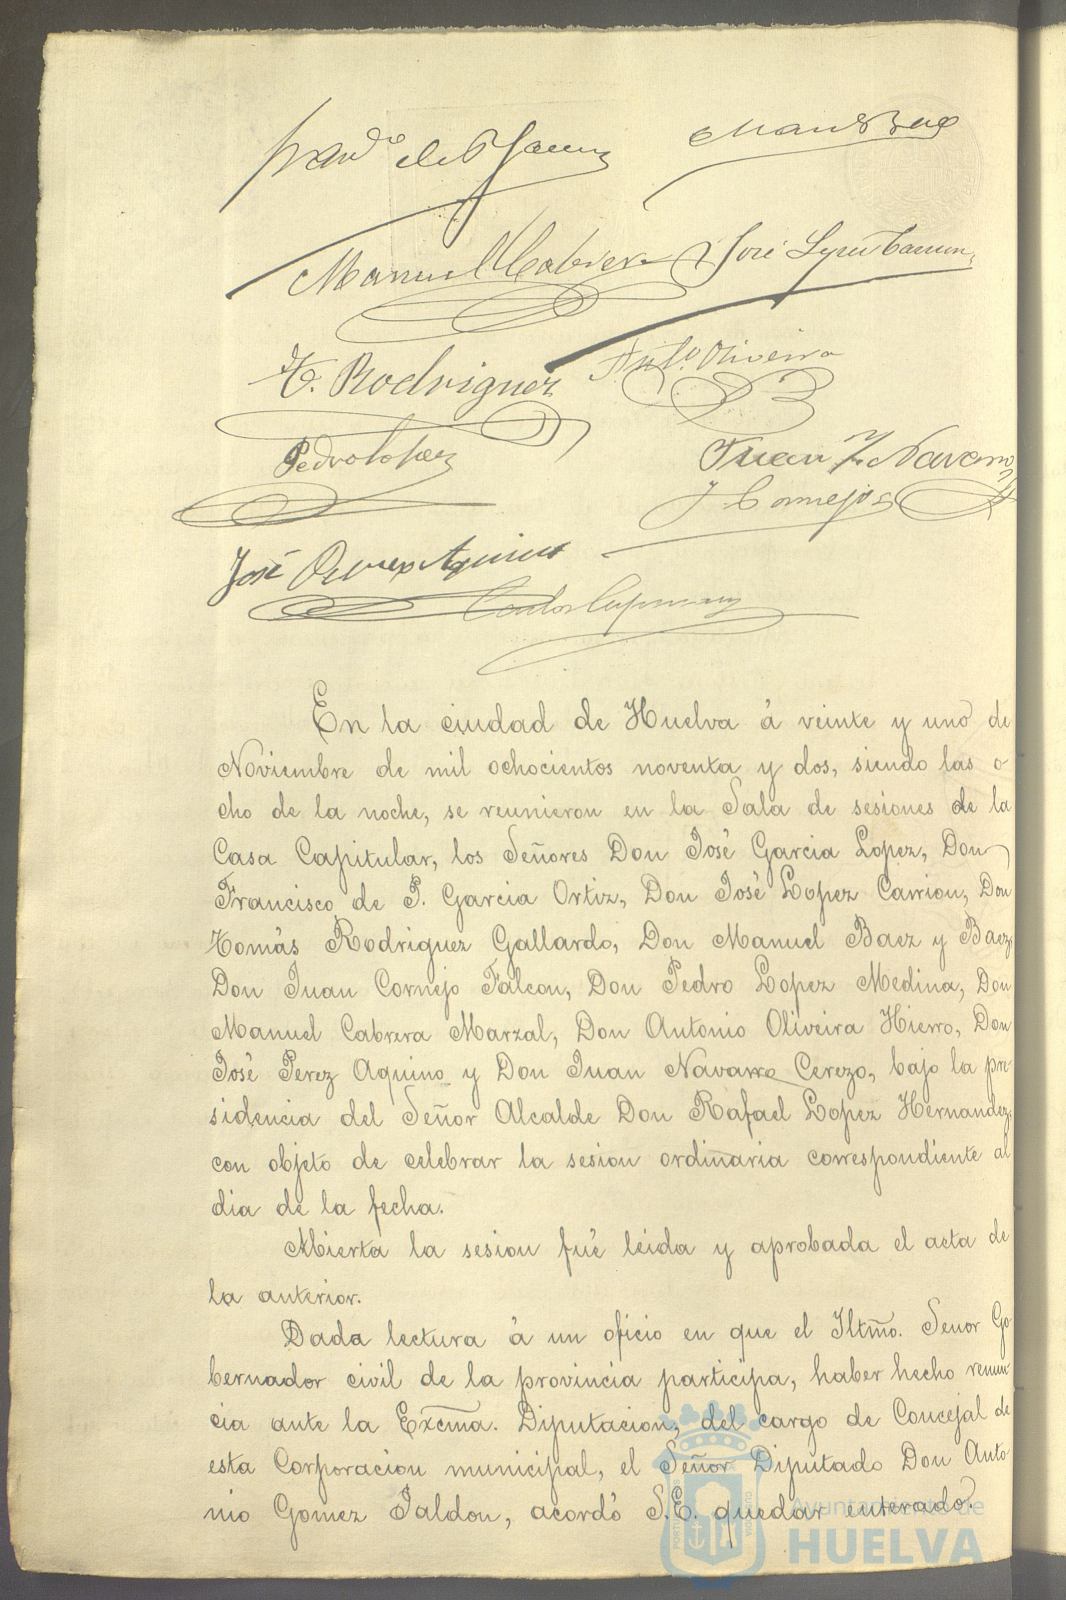 Fran.do de P. Garcia
Man. Baez
Manuel Cabrera
José Lopez Carrion
T. Rodriguez
Ant.o Oliveira
Pedro Lopez
Juan Navarro
J Cornejo
José Perez Aquino
En la ciudad de Huelva á veinte y uno de
Noviembre de mil ochocientos noventa y dos, siendo las o
cho de la noche, se reunieron en la Sala de sesiones de la
Casa Capitular, los Señores Don José Garcia Lopez, Don
Francisco de P. Garcia Ortiz, Don José Lopez Carrion, Don
Tomás Rodriguez Gallardo, Don Manuel Baez y Baez,
Don Juan Cornejo Falcon, Don Pedro Lopez Medina, Don
Manuel Cabrera Marzal, Don Antonio Oliveira Hierro, Don
José Perez Aquino y Don Juan Navarro Cerezo, bajo la pre
sidencia del Señor Alcalde Don Rafael Lopez Hernandez,
con objeto de celebrar la sesion ordinaria correspondiente al
dia de la fecha.
Abierta la sesion fué leida y aprobada el acta de
la anterior.
Dada lectura á un oficio en que el Iltmo. Señor Go
bernador civil de la provincia participa, haber hecho renun
cia ante la Excma. Diputacion, del cargo de Concejal de
esta Corporacion municipal, el Señor Diputado Don Anto-
nio Gomez Jaldon, acordó S.E. quedar enterado.
Ayuntamiento de
HUELVA